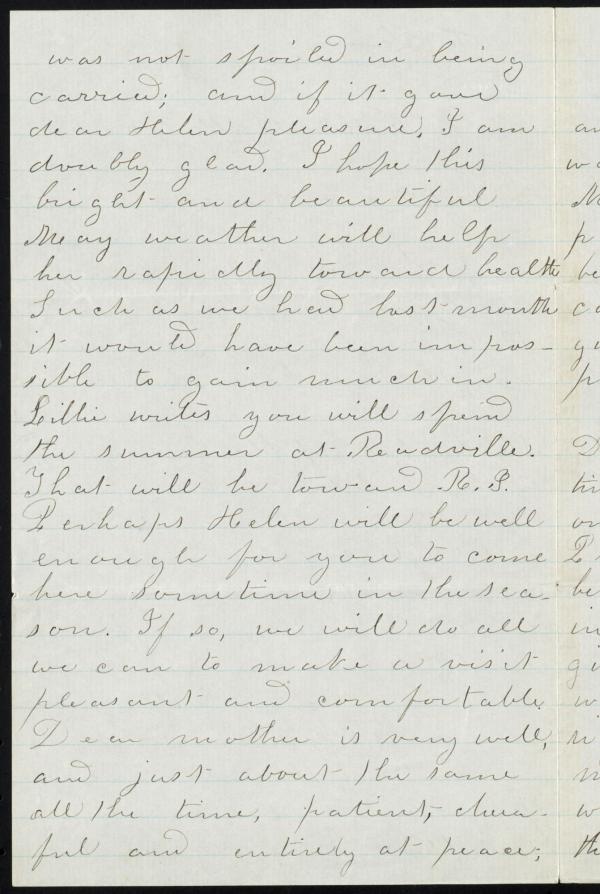 was not spoiled in being
carried; and if it gave
dear Helen pleasure, I am
doubly glad. I hope this
bright and beautiful
May weather will help
her rapidly toward health
Such as we had last month
it would have been impos-
sible to gain much in.
Lillie writes you will spend
the summer at Readville.
That will be toward R.I.
Perhaps Helen will be well
enough for you to come
here sometime in the sea-
son. If so, we will do all
we can to make a visit
pleasant and comfortable.
Dear mother is very well,
and just about the same
all the time, patient, cheer-
ful and entirely at peace;